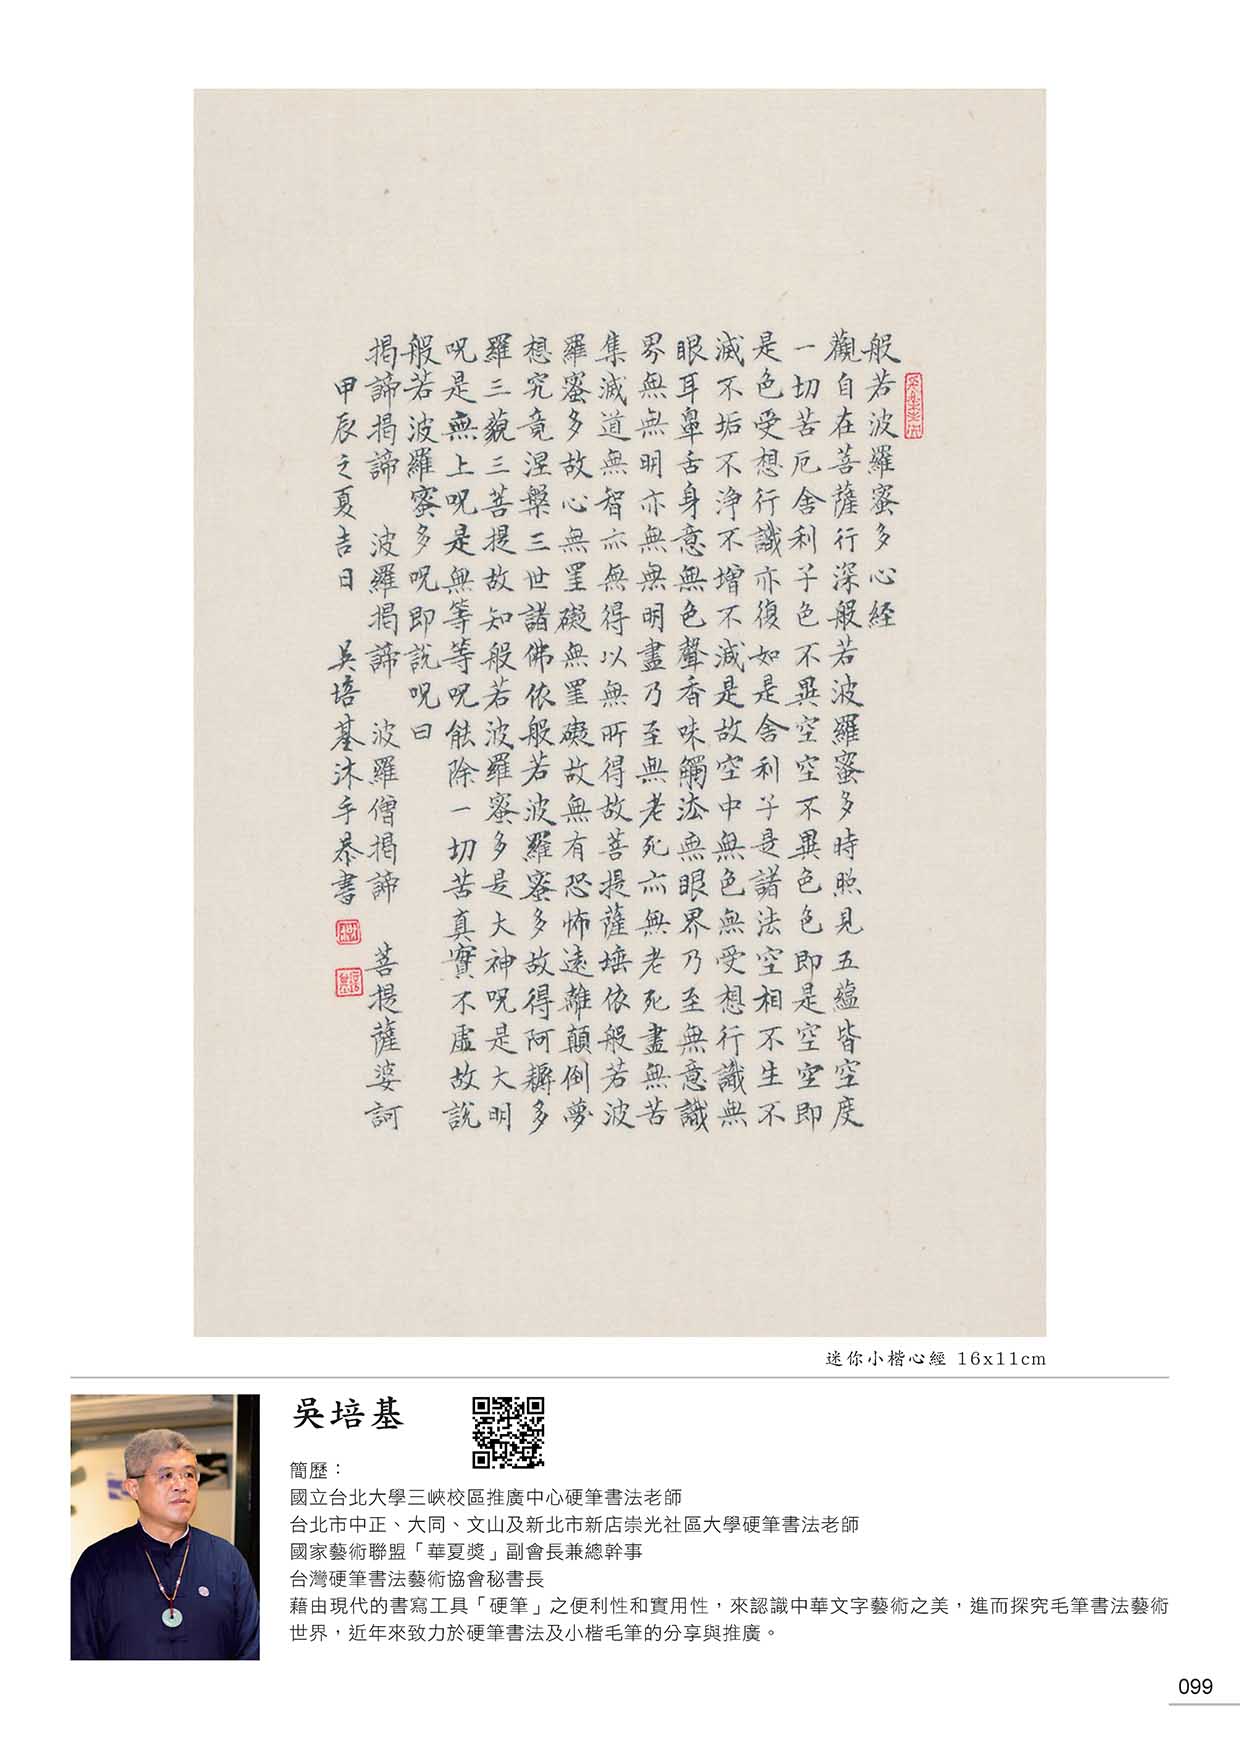 般若波羅蜜多心経
觀自在菩薩行深般若波羅蜜多時照見五蘊皆空度
一切苦厄舍利子色不異空空不異色色即是空空即
是色受想行識亦復如是舍利子是諸法空相不生不
滅不垢不淨不增不減是故空中無色無受想行識無
眼耳鼻舌身意無色聲香味觸法無眼界乃至無意識
界無無明亦無無明盡乃至無老死亦無老死盡無苦
集滅道無智亦無得以無所得故菩提薩埵依般若波
羅蜜多故心無罣礙無罣礙故無有恐怖遠離顛倒夢
想究竟涅槃三世諸佛依般若波羅蜜多故得阿耨多
羅三藐三菩提故知般若波羅蜜多是大神呪是大明
呪是無上呪是無等等呪能除一切苦真實不虛故說
般若波羅蜜多呪即說呪曰
揭諦揭諦 波羅揭諦 波羅僧揭諦 菩提薩婆訶
甲辰之夏吉日 吳培基沐手恭書
迷你小楷心經 16x11cm
吳培基
簡歷：
國立台北大學三峽校區推廣中心硬筆書法老師
台北市中正、大同、文山及新北市新店崇光社區大學硬筆書法老師
國家藝術聯盟「華夏獎」副會長兼總幹事
台灣硬筆書法藝術協會秘書長
藉由現代的書寫工具「硬筆」之便利性和實用性，來認識中華文字藝術之美，進而探究毛筆書法藝術
世界，近年來致力於硬筆書法及小楷毛筆的分享與推廣。
099